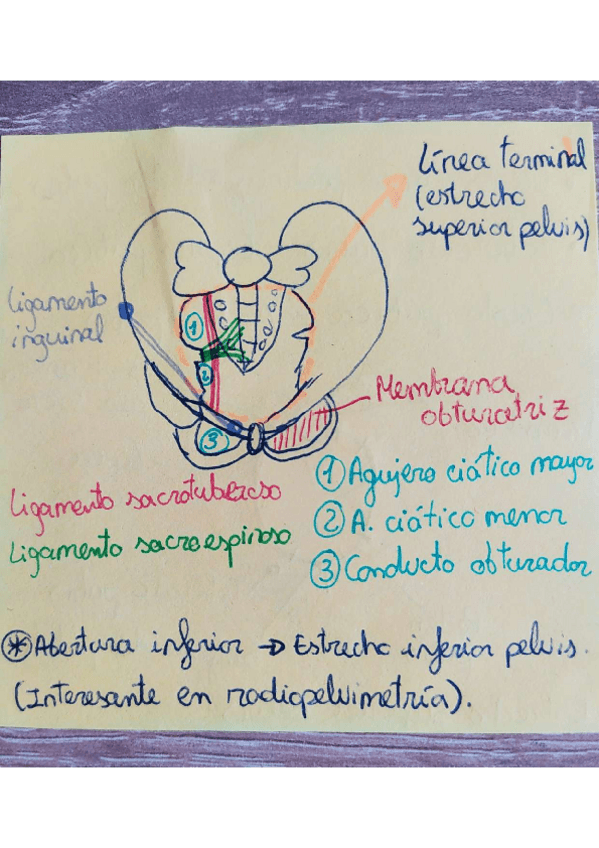 Línea terminal
(estrecho
superior pelvis)
Ligamento
inguinal
1
2
3
Membrana
obturatriz
① Agujero ciático mayor
② A. ciático menor
③ Conducto obturador
Ligamento sacrotuberoso
Ligamento sacroespinoso
⊛ Abertura inferior → Estrecho inferior pelvis.
(Interesante en radiopelvimetría).